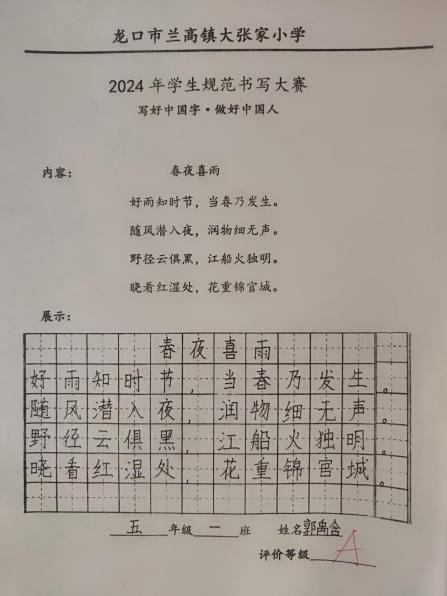 龙口市兰高镇大张家小学
2024年学生规范书写大赛
写好中国字·做好中国人
内容：
春夜喜雨
好雨知时节，当春乃发生。
随风潜入夜，润物细无声。
野径云俱黑，江船火独明。
晓看红湿处，花重锦官城。
展示：
春夜喜雨
好雨知时节，当春乃发生。
随风潜入夜，润物细无声。
野径云俱黑，江船火独明。
晓看红湿处，花重锦宫城。
五年级一班 姓名郭禹含
评价等级A